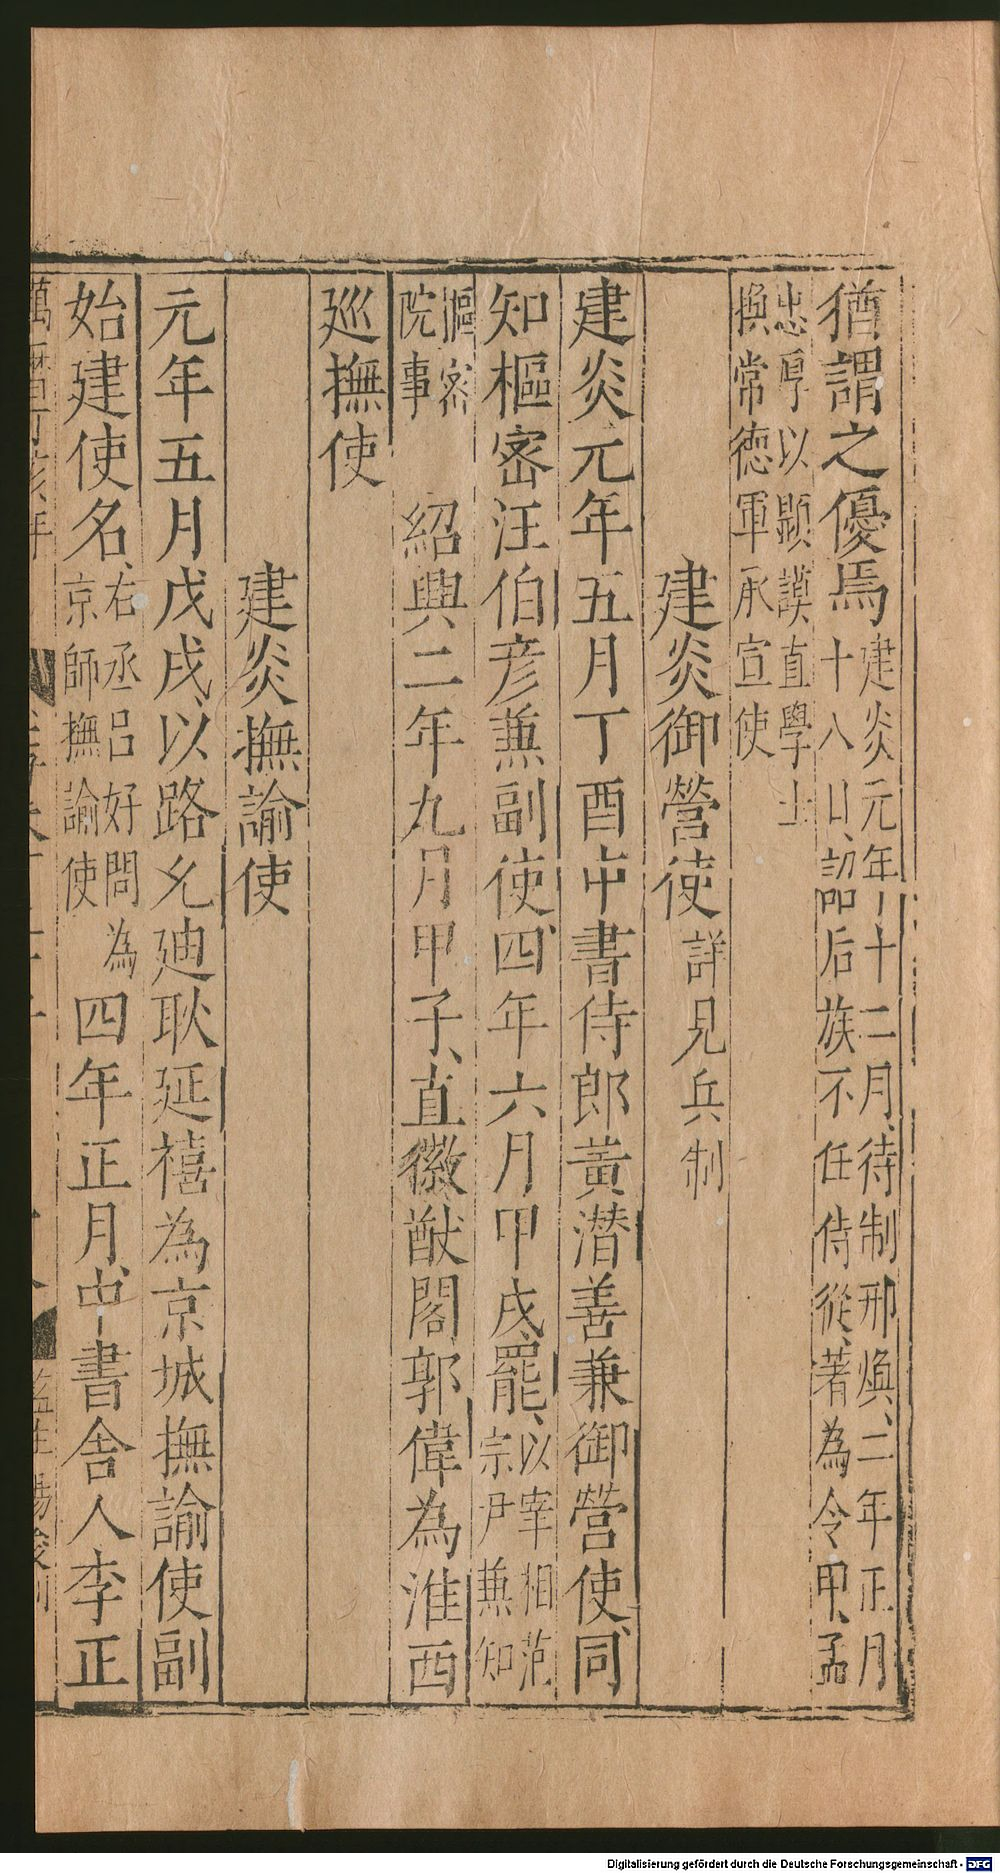 猶謂之優焉建炎元年十二月待制邢煥二年正月
十八日詔后族不任侍從著為令甲孟
忠厚以顯謨直學士
換常德軍承宣使
建炎御營使詳見兵制
建炎元年五月丁酉中書侍郎黃潛善兼御營使同
知樞密汪伯彥兼副使四年六月甲戌罷以宰相范
宗尹兼知
樞密
院事
紹興二年九月甲子直徽猷閣郭偉為淮西
巡撫使
建炎撫諭使
元年五月戊戌以路允迪耿延禧為京城撫諭使副
始建使名右丞呂好問為
京師撫諭使
四年正月中書舍人李正